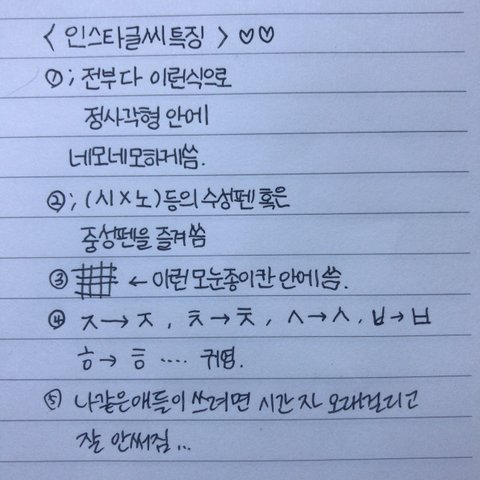 < 인스타글씨특징 > ♡♡
①; 전부다 이런식으로
정사각형 안에
네모네모하게씀.
②; (시X노)등의 수성펜 혹은
중성펜을 즐겨씀
③ ← 이런 모눈종이칸 안에 씀.
④ ㅈ→ㅈ, ㅊ→ㅊ, ㅅ→ㅅ, ㅂ→ㅂ
ㅎ→ㅎ .... 귀염.
⑤ 나같은애들이 쓰려면 시간 지나 오래걸리고
잘 안써짐...